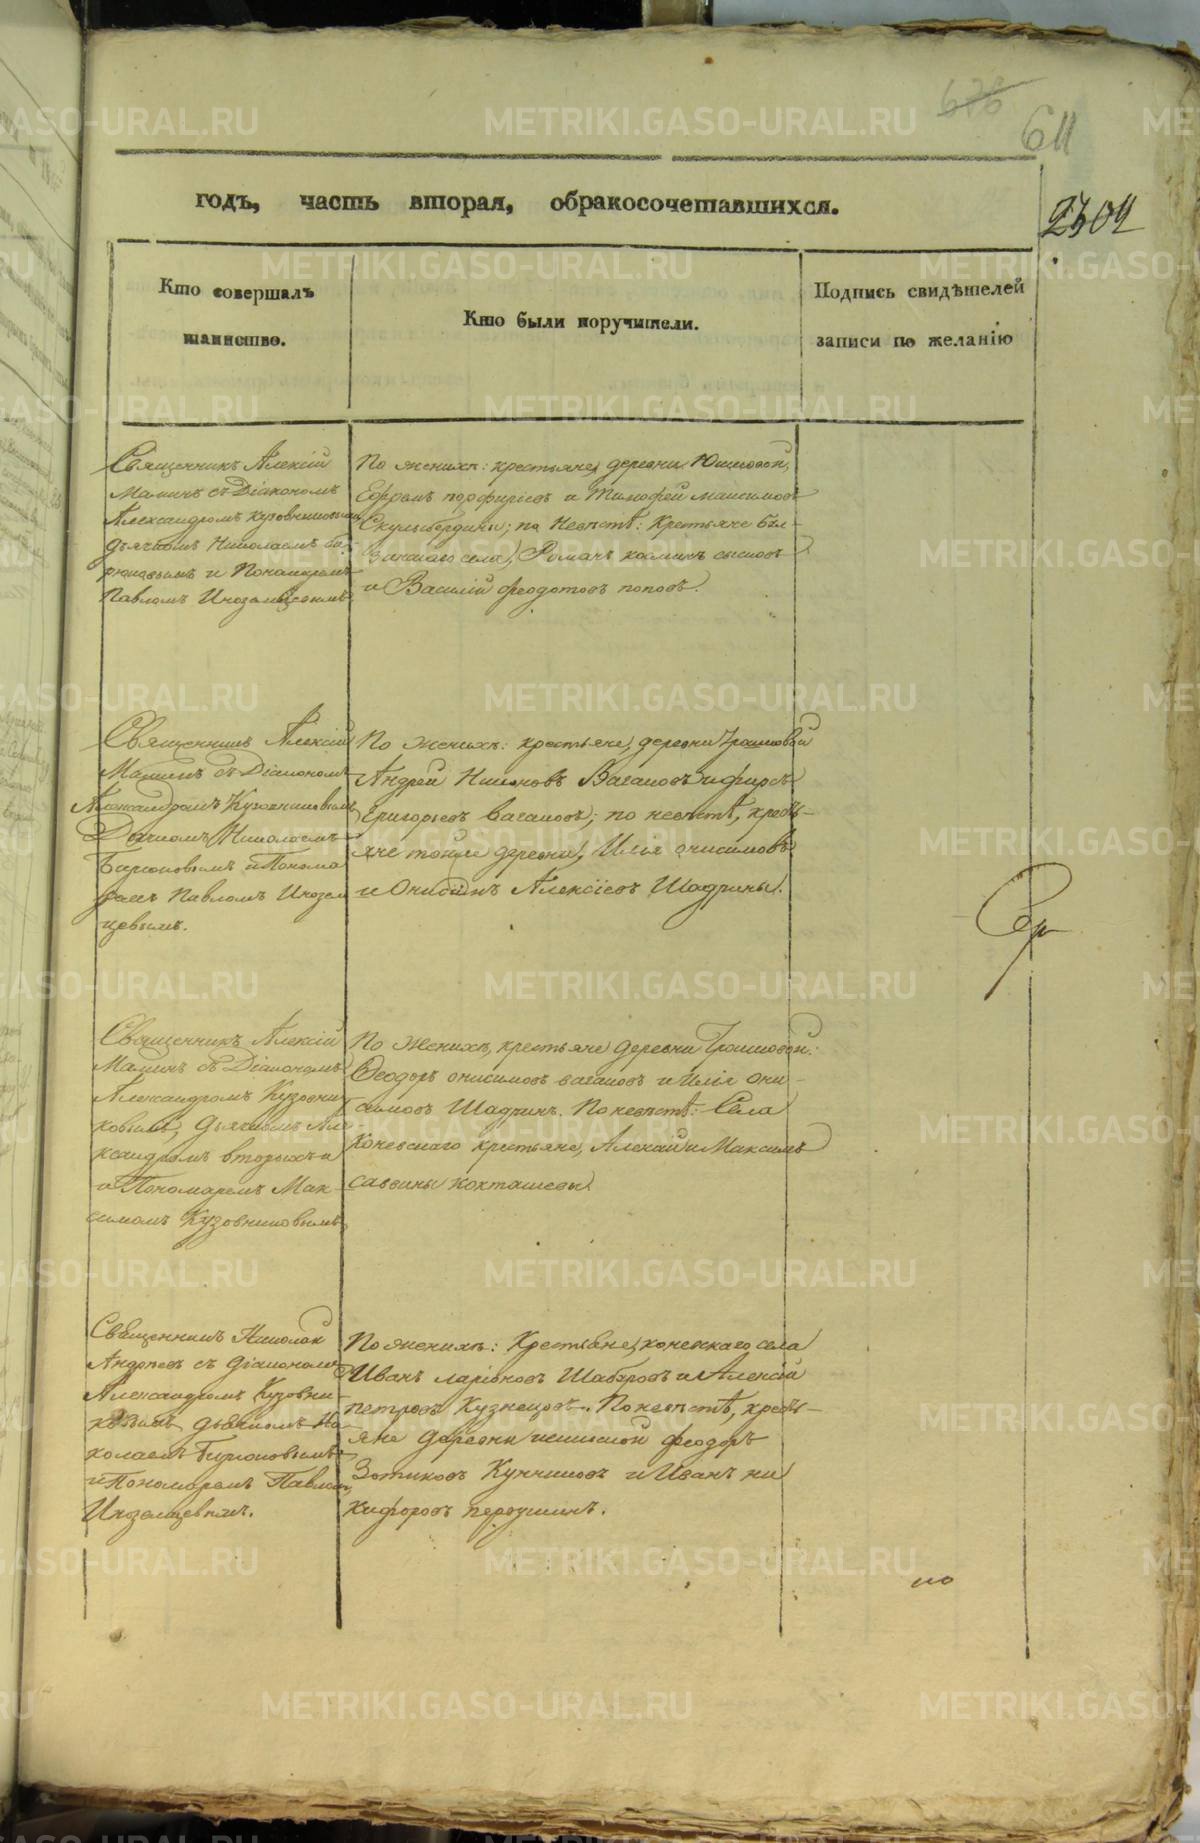 676
611
2302
годъ, часть вторая, обракосочетавшихся.
Кто совершалъ
таинство.
Кто были поручители.
Подпись свидѣтелей
записи по желанію
Священникъ Алексій
Маминъ съ Діакономъ
Александромъ Кузовниковымъ
Дьячкомъ Николаемъ Би-
рюковымъ и Пономаремъ
Павломъ Иноземцевымъ
По женихѣ: крестьяне, деревни Юшковой,
Ефремъ порфирьевъ и Тимофей максимовъ
Скумбердины; по Невѣстѣ: Крестьяне
села, Романъ козминъ сысковъ
и Василій феодотовъ поповъ.
Священникъ Алексій
Маминъ съ Діакономъ
Александромъ Кузовниковымъ
Дьячкомъ Николаемъ
Бирюковымъ и Понома
ремъ Павломъ Инозем
цевымъ.
По женихѣ: крестьяне, деревни
Андрей Никоновъ Вагановъ и фирсъ
Григорьевъ вагановъ; по невѣстѣ, кресть-
яне тойже деревни, Илья онисимовъ
и Алексіевъ Шадрины.
Священникъ Алексій
Маминъ съ Діакономъ
Александромъ Кузовни
ковымъ, Дьячкомъ Але-
ксандромъ вторыхъ и
и Пономаремъ Мак
симомъ Кузовниковымъ
По женихѣ, крестьяне деревни
Феодоръ онисимовъ вагановъ и Илія они-
симовъ Шадринъ. По невѣстѣ: Села
Коневскаго крестьяне, Алексѣй и Максимъ
саввины кокташевы
Священникъ Николай
Андреевъ съ діакономъ
Александромъ Кузовни-
ковымъ дьячкомъ Ни
колаемъ Бирюковымъ
и Пономаремъ Павломъ
Иноземцевымъ.
По женихѣ: Крестьяне, коневскаго села
Иванъ ларіоновъ Шабуровъ и Алексій
петровъ Кузнецовъ. По невѣстѣ, кресть-
яне деревни феодоръ
Зотиковъ Кунчиковъ и Иванъ ни
кифоровъ первушинъ.
METRIKI.GASO-URAL.RU